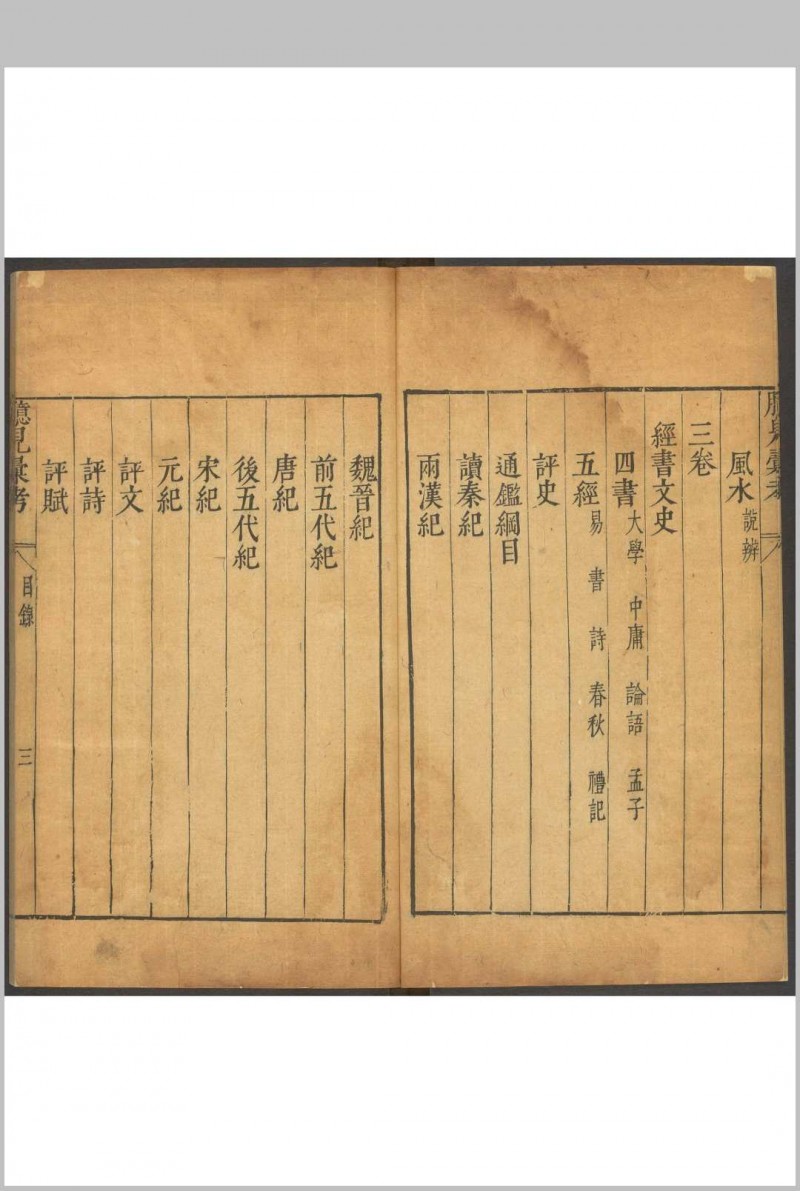 臆見彙考
風水 說 辨
三卷
經書文史
四書 大學 中庸 論語 孟子
五經 易 書 詩 春秋 禮記
評史
通鑑綱目
讀秦紀
兩漢紀
魏晉紀
前五代紀
唐紀
後五代紀
宋紀
元紀
評文
評詩
評賦
臆見彙考 目錄 三